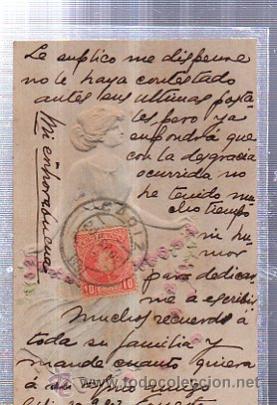 Le suplico me dispense
no le haya contestado
antes sus ultimas posta-
les pero ya
supondrá que
con la desgracia
ocurrida no
he tenido mu-
cho tiempo
ni hu-
mor
para dedicar
me a escribir
Muchos recuerdos á
toda su familia y
mande cuanto quiera
á su afmo amigo
Mi enhorabuena
CADIZ
10 10
www.todocoleccion.net